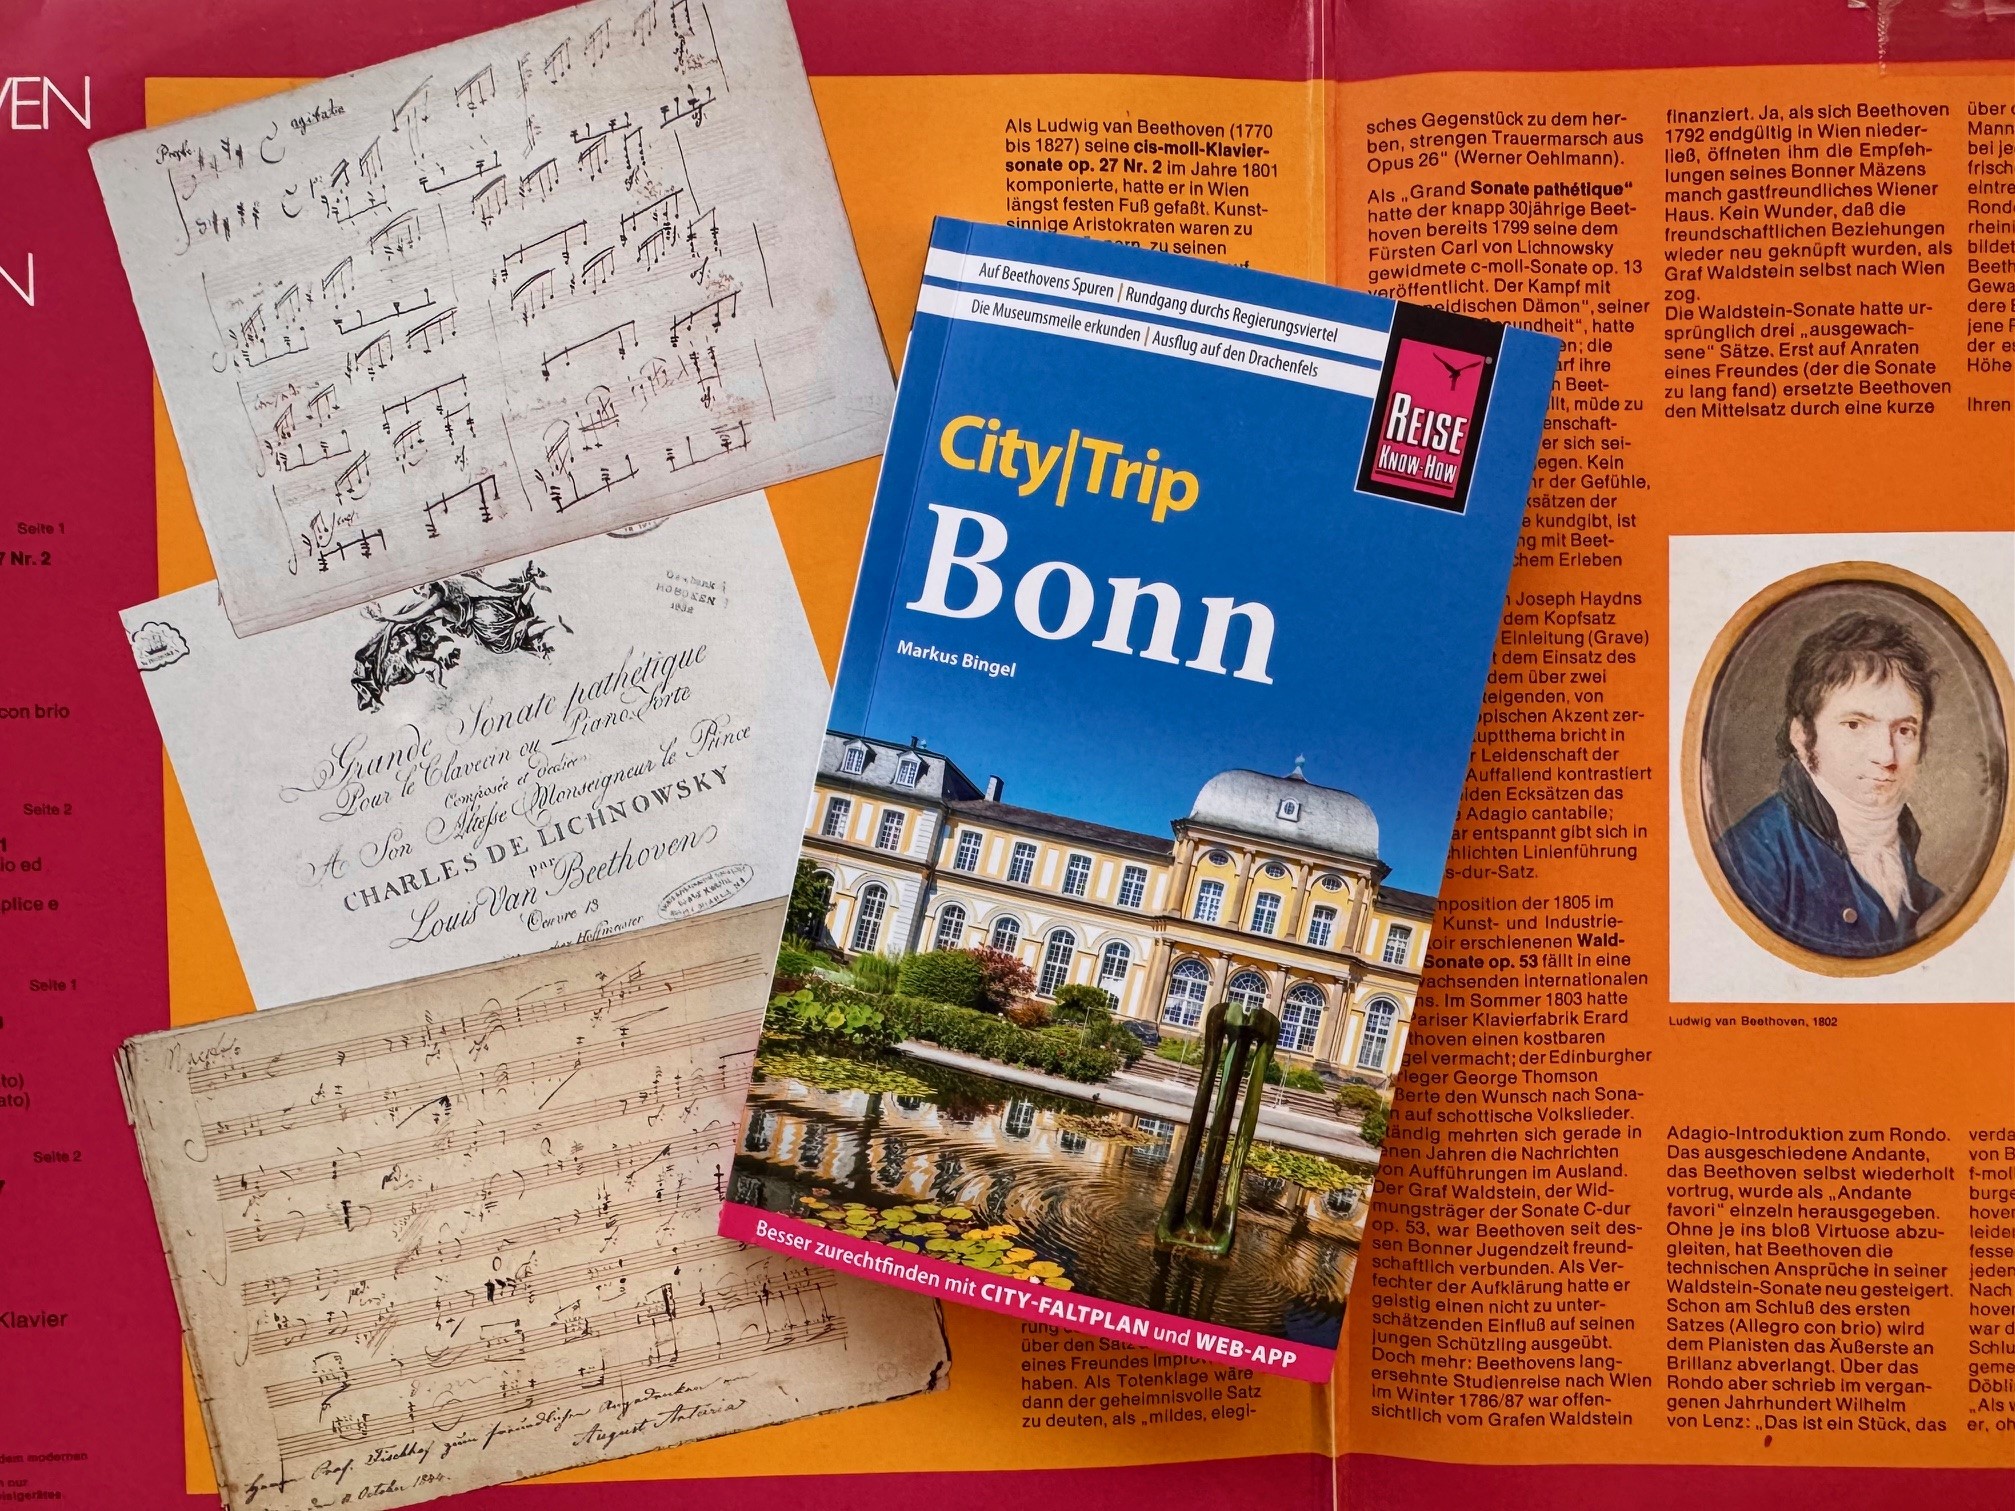 VEN
N
Seite 1
7 Nr. 2
con brio
Seite 2
1
io ed
plice e
Seite 1
to)
ato)
Seite 2
7
Klavier
dem modernen
n nur
ielgerätes.
Presto
agitato
Geschenk
HOBOKEN
Grande Sonate pathétique
Pour le Clavecin ou Piano-Forte
Composée et dediée
A Son Altesse Monseigneur le Prince
CHARLES DE LICHNOWSKY
par
Louis Van Beethoven
Oeuvre 13
chez Hoffmeister
Herrn Prof. Fischhof zum freundlichen Angedenken von
August Artaria
October
Als Ludwig van Beethoven (1770
bis 1827) seine cis-moll-Klavier-
sonate op. 27 Nr. 2 im Jahre 1801
komponierte, hatte er in Wien
längst festen Fuß gefaßt. Kunst-
sinnige Aristokraten waren zu
zu seinen
Auf Beethovens Spuren | Rundgang durchs Regierungsviertel
Die Museumsmeile erkunden | Ausflug auf den Drachenfels
REISE
KNOW-HOW
City|Trip
Bonn
Markus Bingel
Besser zurechtfinden mit CITY-FALTPLAN und WEB-APP
über den Satz
eines Freundes
haben. Als Totenklage wäre
dann der geheimnisvolle Satz
zu deuten, als „mildes, elegi-
sches Gegenstück zu dem her-
ben, strengen Trauermarsch aus
Opus 26“ (Werner Oehlmann).
Als „Grand Sonate pathétique“
hatte der knapp 30jährige Beet-
hoven bereits 1799 seine dem
Fürsten Carl von Lichnowsky
gewidmete c-moll-Sonate op. 13
veröffentlicht. Der Kampf mit
neidischen Dämon“, seiner
Gesundheit“, hatte
en; die
arf ihre
n Beet-
llt, müde zu
enschaft-
er sich sei-
egen. Kein
hr der Gefühle,
ksätzen der
e kundgibt, ist
ng mit Beet-
chem Erleben
Joseph Haydns
dem Kopfsatz
Einleitung (Grave)
t dem Einsatz des
dem über zwei
teigenden, von
opischen Akzent zer-
auptthema bricht in
r Leidenschaft der
Auffallend kontrastiert
eiden Ecksätzen das
e Adagio cantabile;
ar entspannt gibt sich in
chlichten Linienführung
s-dur-Satz.
mposition der 1805 im
Kunst- und Industrie-
oir erschienenen Wald-
Sonate op. 53 fällt in eine
wachsenden internationalen
ns. Im Sommer 1803 hatte
Pariser Klavierfabrik Erard
thoven einen kostbaren
gel vermacht; der Edinburgher
rleger George Thomson
ßerte den Wunsch nach Sona-
n auf schottische Volkslieder.
tändig mehrten sich gerade in
enen Jahren die Nachrichten
von Aufführungen im Ausland.
Der Graf Waldstein, der Wid-
mungsträger der Sonate C-dur
op. 53, war Beethoven seit des-
sen Bonner Jugendzeit freund-
schaftlich verbunden. Als Ver-
fechter der Aufklärung hatte er
geistig einen nicht zu unter-
schätzenden Einfluß auf seinen
jungen Schützling ausgeübt.
Doch mehr: Beethovens lang-
ersehnte Studienreise nach Wien
im Winter 1786/87 war offen-
sichtlich vom Grafen Waldstein
finanziert. Ja, als sich Beethoven
1792 endgültig in Wien nieder-
ließ, öffneten ihm die Empfeh-
lungen seines Bonner Mäzens
manch gastfreundliches Wiener
Haus. Kein Wunder, daß die
freundschaftlichen Beziehungen
wieder neu geknüpft wurden, als
Graf Waldstein selbst nach Wien
zog.
Die Waldstein-Sonate hatte ur-
sprünglich drei „ausgewach-
sene“ Sätze. Erst auf Anraten
eines Freundes (der die Sonate
zu lang fand) ersetzte Beethoven
den Mittelsatz durch eine kurze
Ludwig van Beethoven, 1802
Adagio-Introduktion zum Rondo.
Das ausgeschiedene Andante,
das Beethoven selbst wiederholt
vortrug, wurde als „Andante
favori“ einzeln herausgegeben.
Ohne je ins bloß Virtuose abzu-
gleiten, hat Beethoven die
technischen Ansprüche in seiner
Waldstein-Sonate neu gesteigert.
Schon am Schluß des ersten
Satzes (Allegro con brio) wird
dem Pianisten das Äußerste an
Brillanz abverlangt. Über das
Rohdo aber schrieb im vergan-
genen Jahrhundert Wilhelm
von Lenz: „Das ist ein Stück, das
über
Mann
bei je
frisch
eintre
Rond
rheini
bildet
Beeth
Gewa
dere
jene
der es
Höhe
Ihren
verda
von B
f-mol
burge
hoven
leide
fesse
jeden
Nach
hoven
war d
Schlu
geme
Döbli
„Als
er, oh